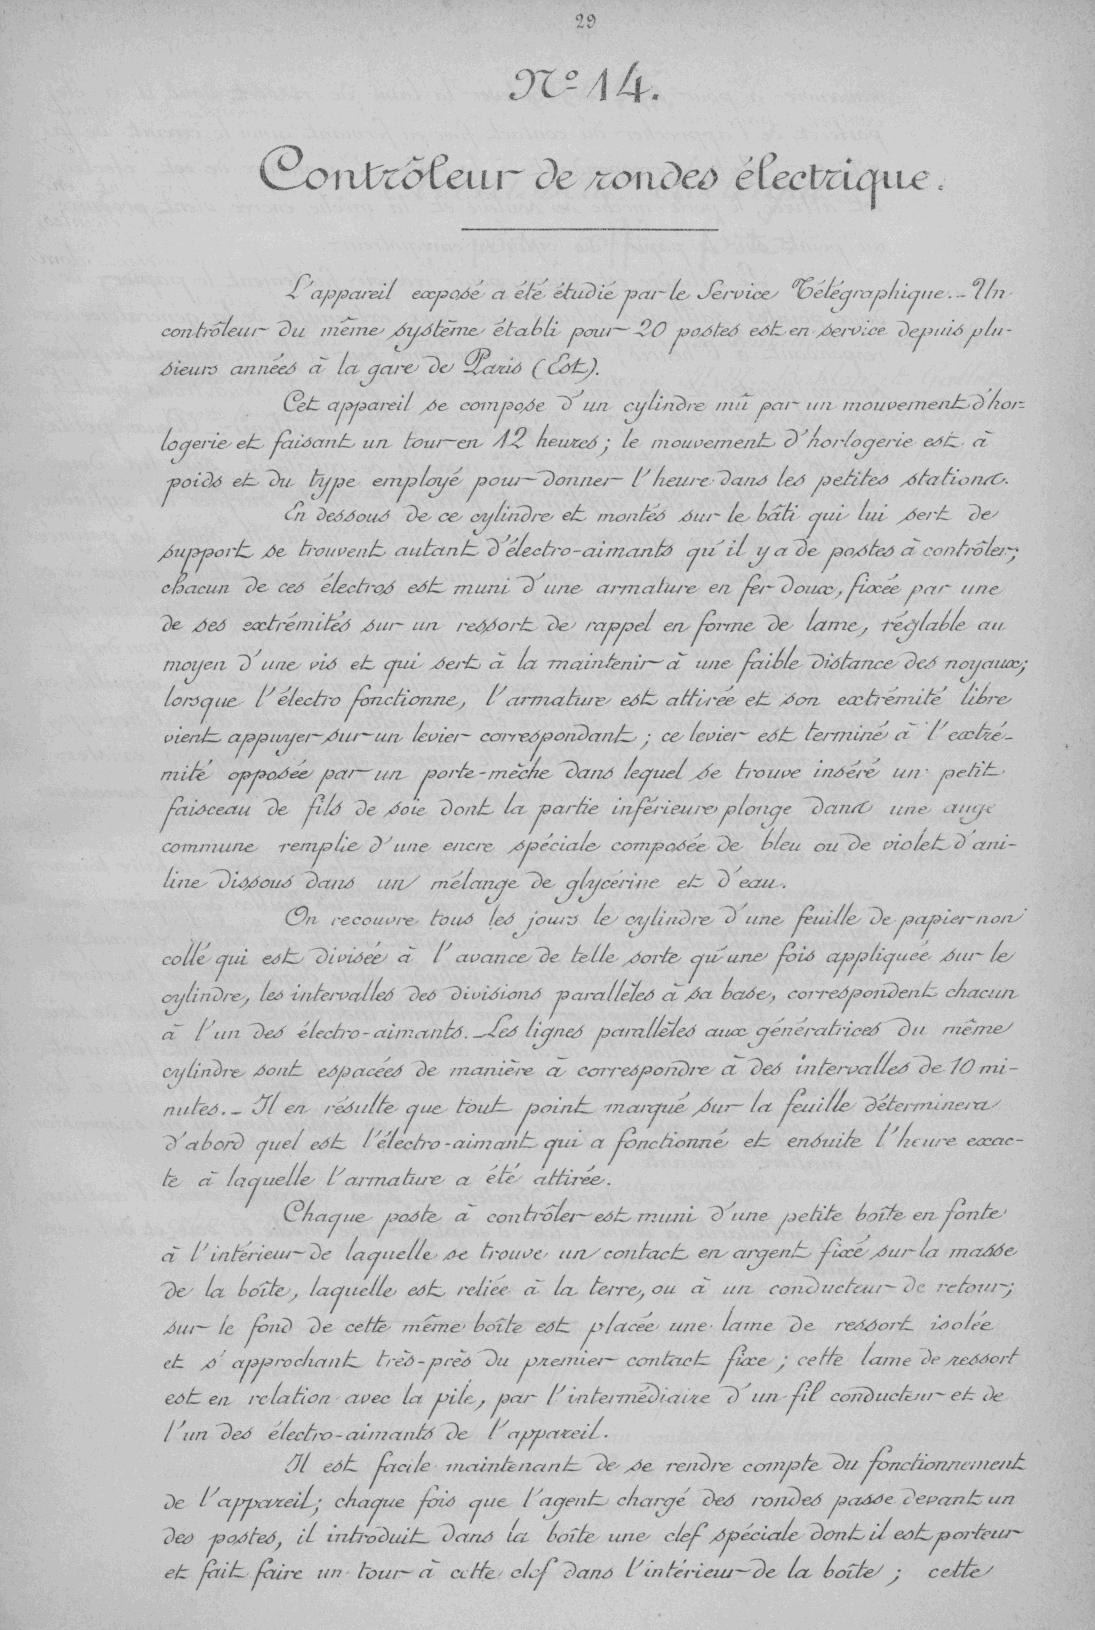 29
Nº 14.
Contrôleur de rondes électrique.
L'appareil exposé a été étudié par le Service Télégraphique. _ Un
contrôleur du même système établi pour 20 postes est en service depuis plu-
sieurs années à la gare de Paris (Est).
Cet appareil se compose d'un cylindre mû par un mouvement d'hor-
logerie et faisant un tour en 12 heures ; le mouvement d'horlogerie est à
poids et du type employé pour donner l'heure dans les petites stations.
En dessous de ce cylindre et montés sur le bâti qui lui sert de
support se trouvent autant d'électro-aimants qu'il y a de postes à contrôler ;
chacun de ces électros est muni d'une armature en fer doux, fixée par une
de ses extrémités sur un ressort de rappel en forme de lame, réglable au
moyen d'une vis et qui sert à la maintenir à une faible distance des noyaux ;
lorsque l'électro fonctionne, l'armature est attirée et son extrémité libre
vient appuyer sur un levier correspondant ; ce levier est terminé à l'extré-
mité opposée par un porte-mèche dans lequel se trouve inséré un petit
faisceau de fils de soie dont la partie inférieure plonge dans une auge
commune remplie d'une encre spéciale composée de bleu ou de violet d'ani-
line dissous dans un mélange de glycérine et d'eau.
On recouvre tous les jours le cylindre d'une feuille de papier non
collé qui est divisée à l'avance de telle sorte qu'une fois appliquée sur le
cylindre, les intervalles des divisions parallèles à sa base, correspondent chacun
à l'un des électro-aimants. _ Les lignes parallèles aux génératrices du même
cylindre sont espacées de manière à correspondre à des intervalles de 10 mi-
nutes. _ Il en résulte que tout point marqué sur la feuille déterminera
d'abord quel est l'électro-aimant qui a fonctionné et ensuite l'heure exac-
te à laquelle l'armature a été attirée.
Chaque poste à contrôler est muni d'une petite boîte en fonte
à l'intérieur de laquelle se trouve un contact en argent fixé sur la masse
de la boîte, laquelle est reliée à la terre, ou à un conducteur de retour ;
sur le fond de cette même boîte est placée une lame de ressort isolée
et s'approchant très-près du premier contact fixe ; cette lame de ressort
est en relation avec la pile, par l'intermédiaire d'un fil conducteur et de
l'un des électro-aimants de l'appareil.
Il est facile maintenant de se rendre compte du fonctionnement
de l'appareil ; chaque fois que l'agent chargé des rondes passe devant un
des postes, il introduit dans la boîte une clef spéciale dont il est porteur
et fait faire un tour à cette clef dans l'intérieur de la boîte ; cette